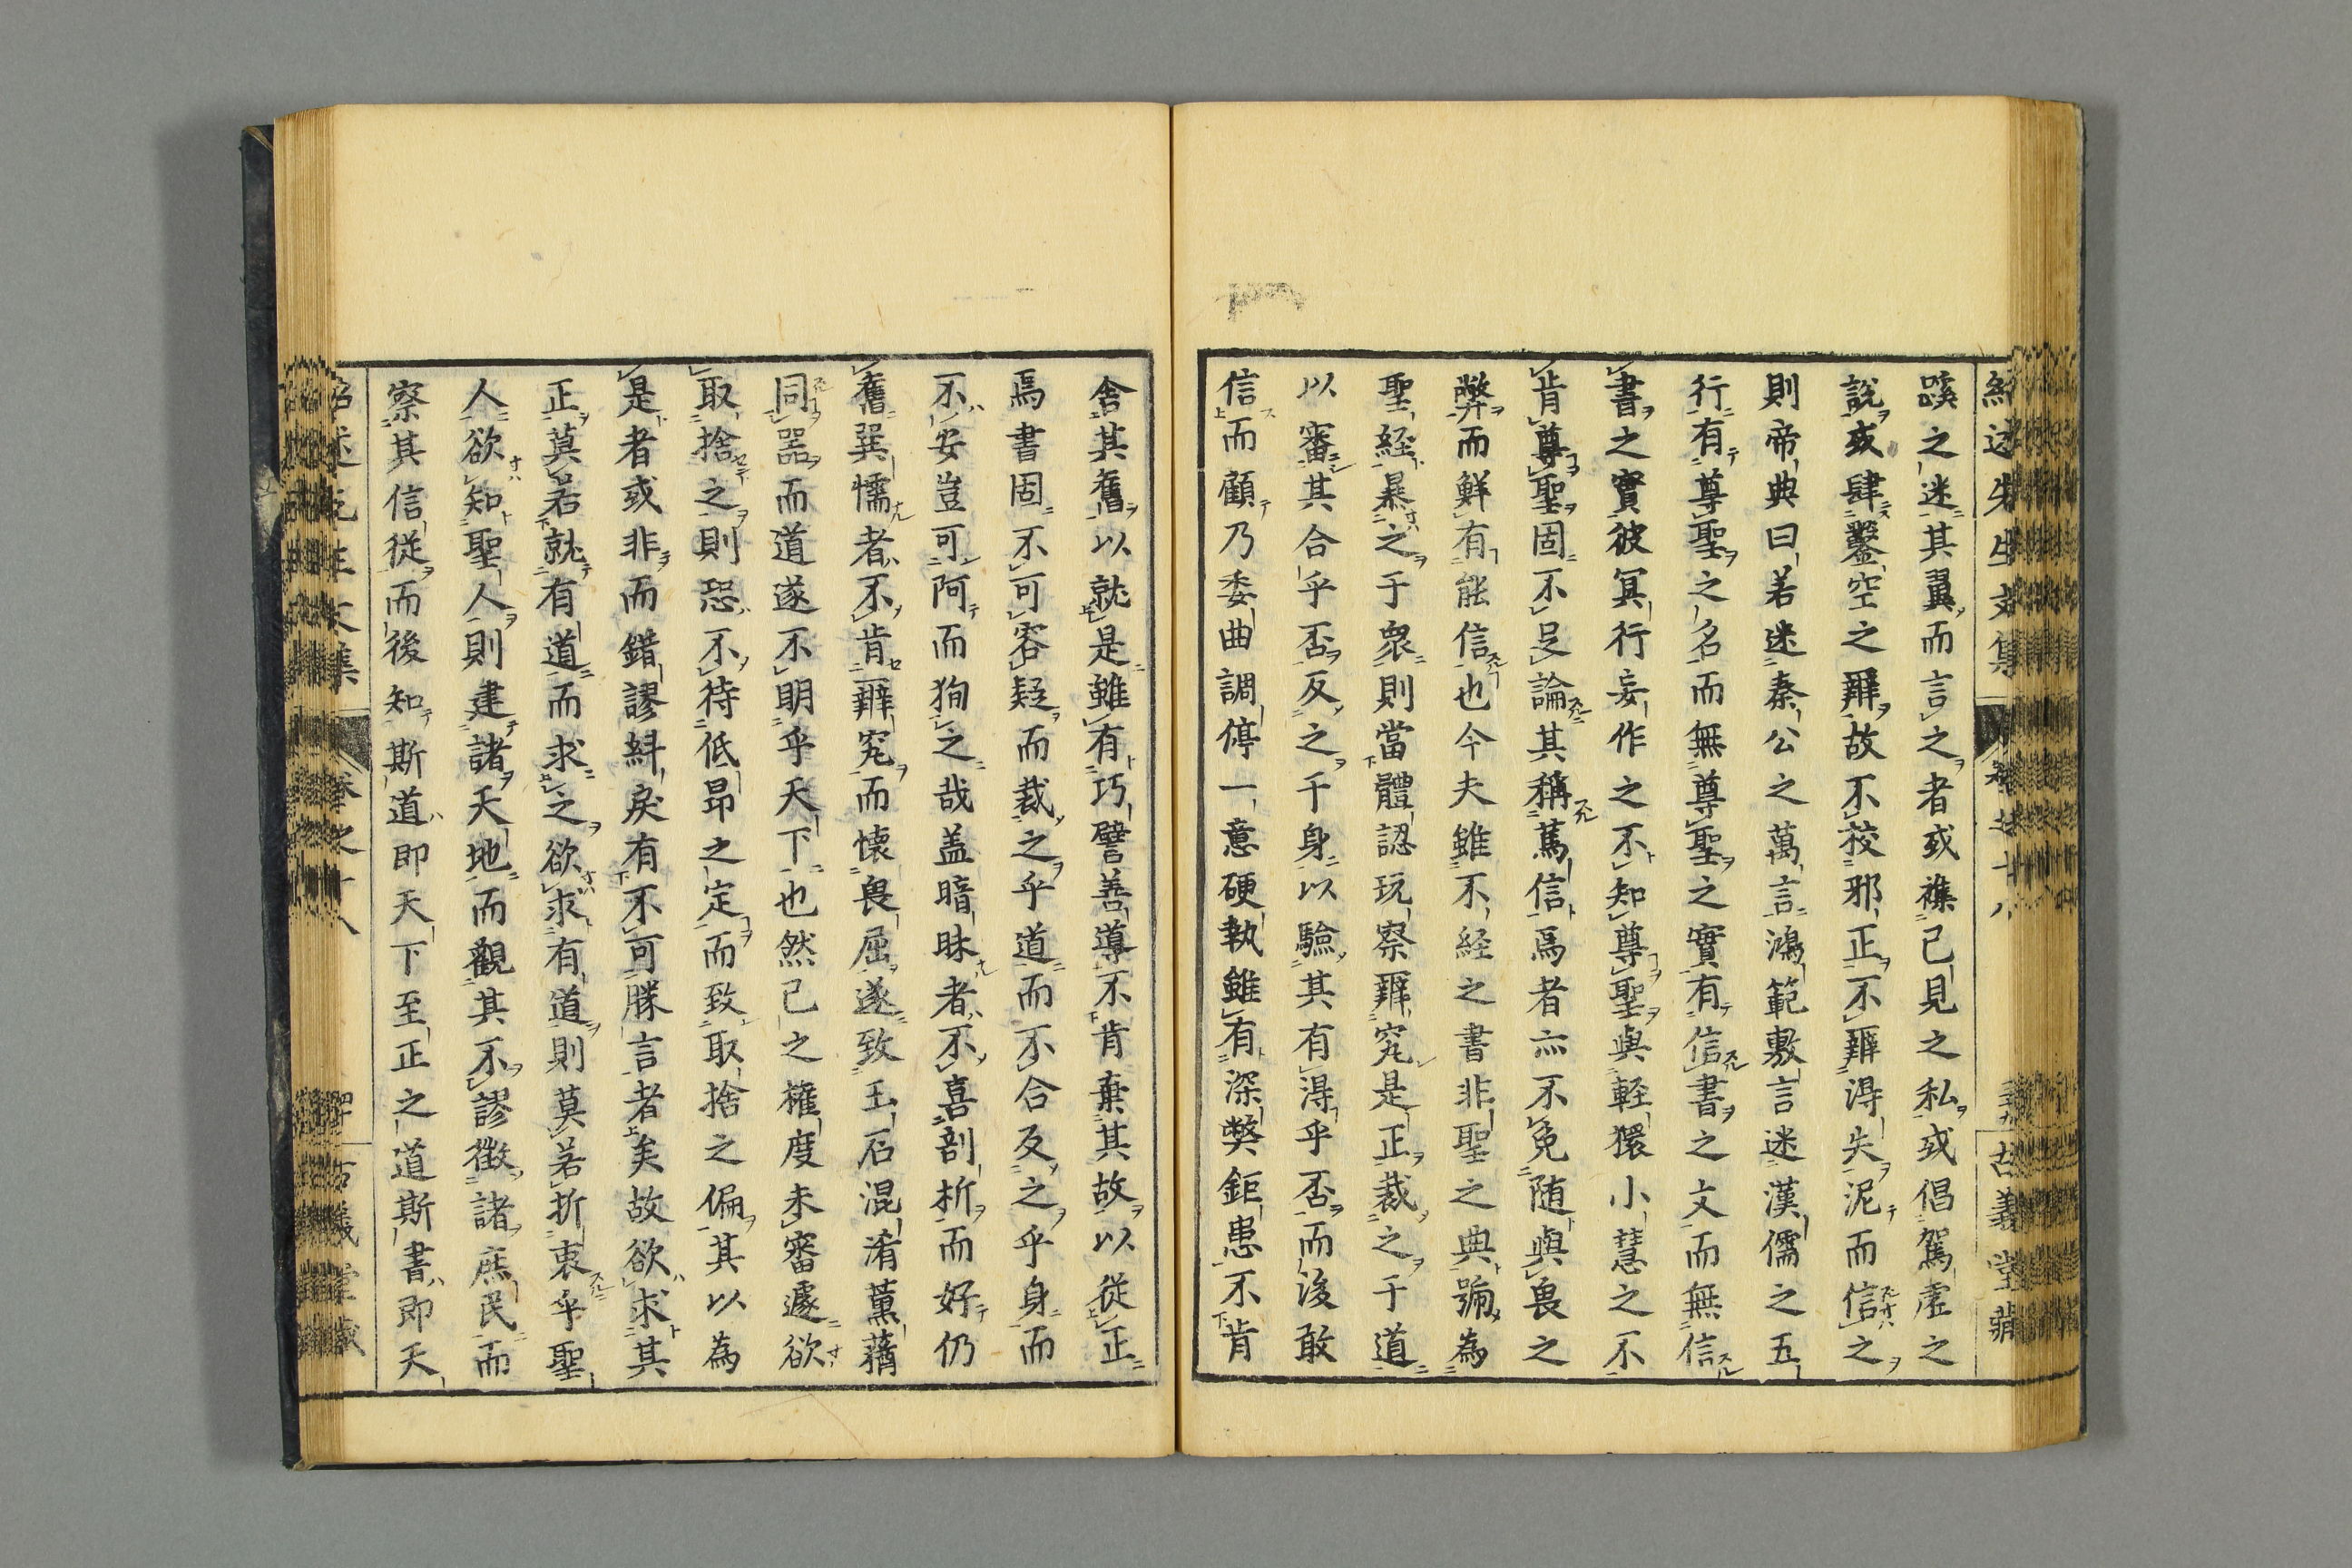 蹊之迷其翼而言之者或襍己見之私或倡駕虛之
說或肆鑿空之辯故不校邪正不辯淂失泥而信之
則帝典曰若迷秦公之萬言鴻範敷言迷漢儒之五
行有尊聖之名而無尊聖之實有信書之文而無信
書之實彼冥行妄作之不知尊聖與輕獧小慧之不
肯尊聖固不足論其稱篤信焉者亦不免随與畏之
弊而鮮有能信也今夫雖不経之書非聖之典號為
聖経暴之于衆則當體認玩察辯究是正裁之于道
以審其合乎否反之于身以驗其有淂乎否而後敢
信而顧乃委曲調停一意硬執雖有深弊鉅患不肯
舍其舊以就是雖有巧譬善導不肯棄其故以從正
焉書固不可容疑而裁之乎道而不合反之乎身而
不安豈可阿而狥之哉盖暗昧者不喜剖析而好仍
舊巽懦者不肯辯究而懷畏屈遂致玉石混淆薰蕕
同器而道遂不明乎天下也然己之權度未審遽欲
取捨之則恐不待低昂之定而致取捨之偏其以為
是者或非而錯謬糾戾有不可勝言者矣故欲求其
正莫若就有道而求之欲求有道則莫若折衷乎聖
人欲知聖人則建諸天地而觀其不謬徵諸庶民而
察其信從而後知斯道即天下至正之道斯書即天